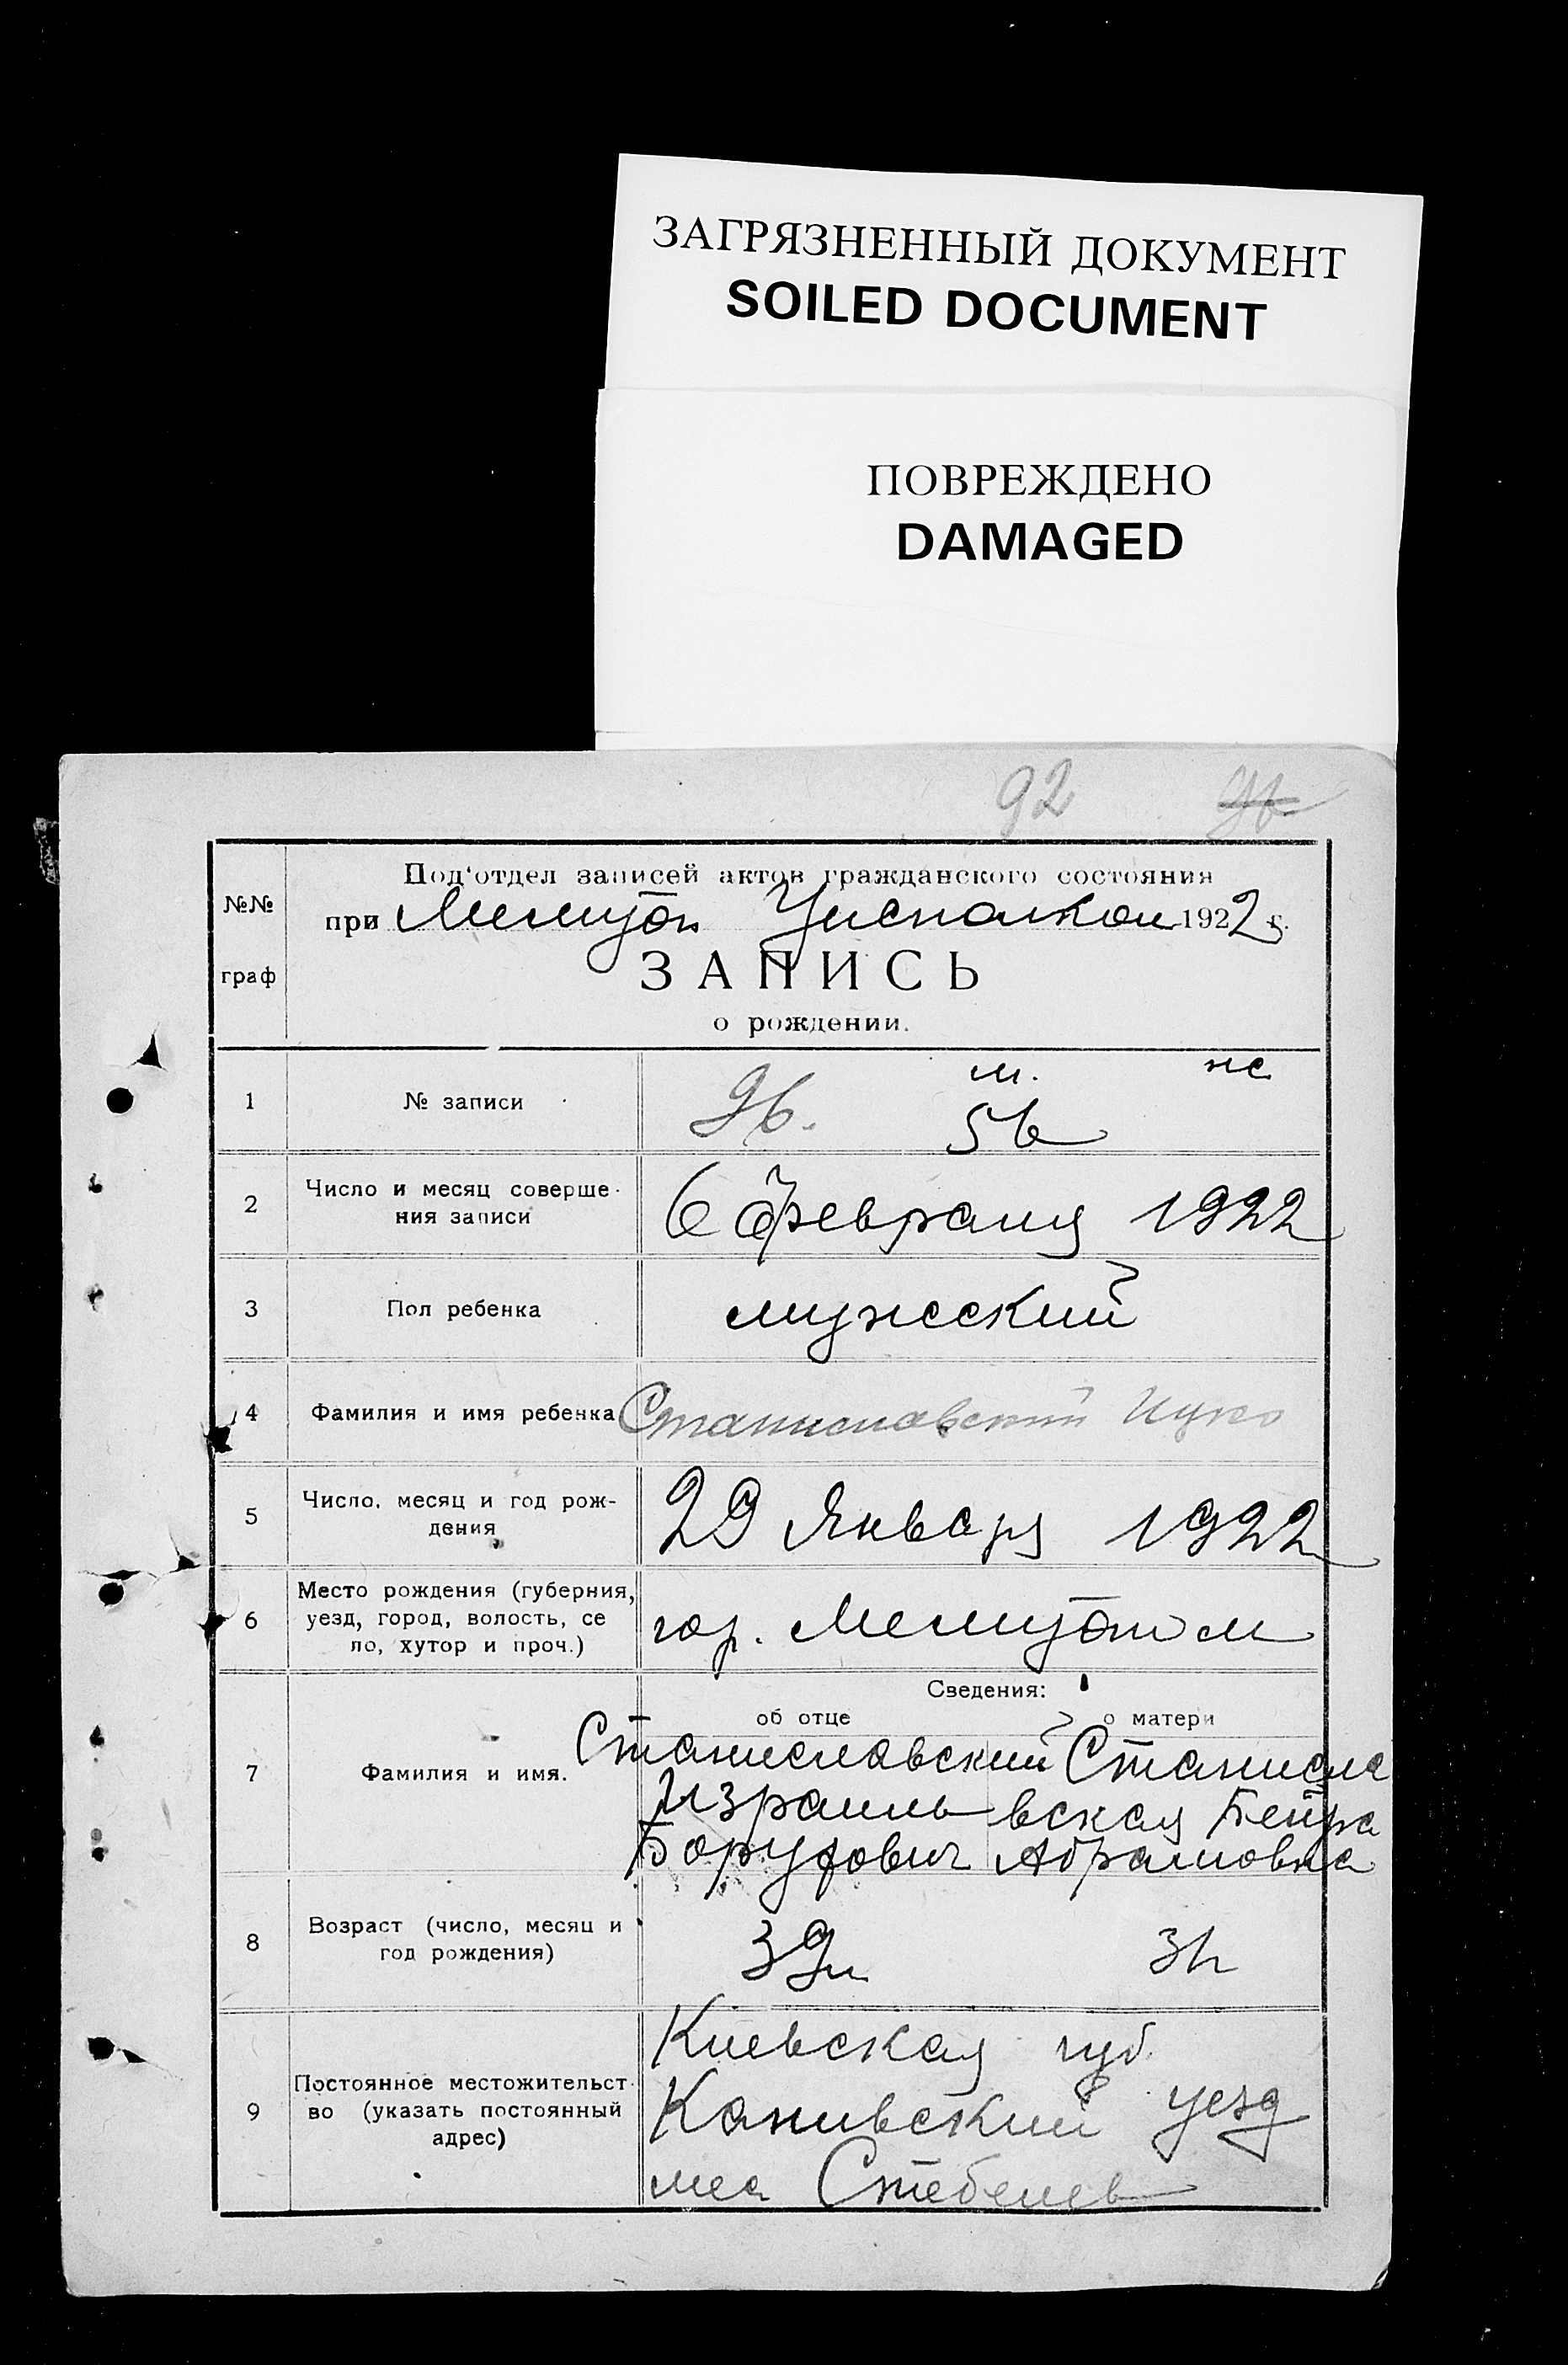 ЗАГРЯЗНЕННЫЙ ДОКУМЕНТ
SOILED DOCUMENT
ПОВРЕЖДЕНО
DAMAGED
92
№№
граф
Под'отдел записей актов гражданского состояния
при 1922 г.
ЗАПИСЬ
о рождении.
м. же
1 № записи 96. 56
2 Число и месяц соверше-
ния записи
6 Февраля 1922
3 Пол ребенка мужеский
4 Фамилия и имя ребенка Станиславский
5 Число, месяц и год рож-
дения
29 Января 1922
6 Место рождения (губерния,
уезд, город, волость, се
ло, хутор и проч.)
гор.
Сведения:
об отце о матери
7 Фамилия и имя. Станиславский Станисла
Израиль вская Бейра
Борухович Абрамовна
8 Возраст (число, месяц и
год рождения)
39 л
9 Постоянное местожительст-
во (указать постоянный
адрес)
Киевская губ.
Каневский уезд
мес Стебелев